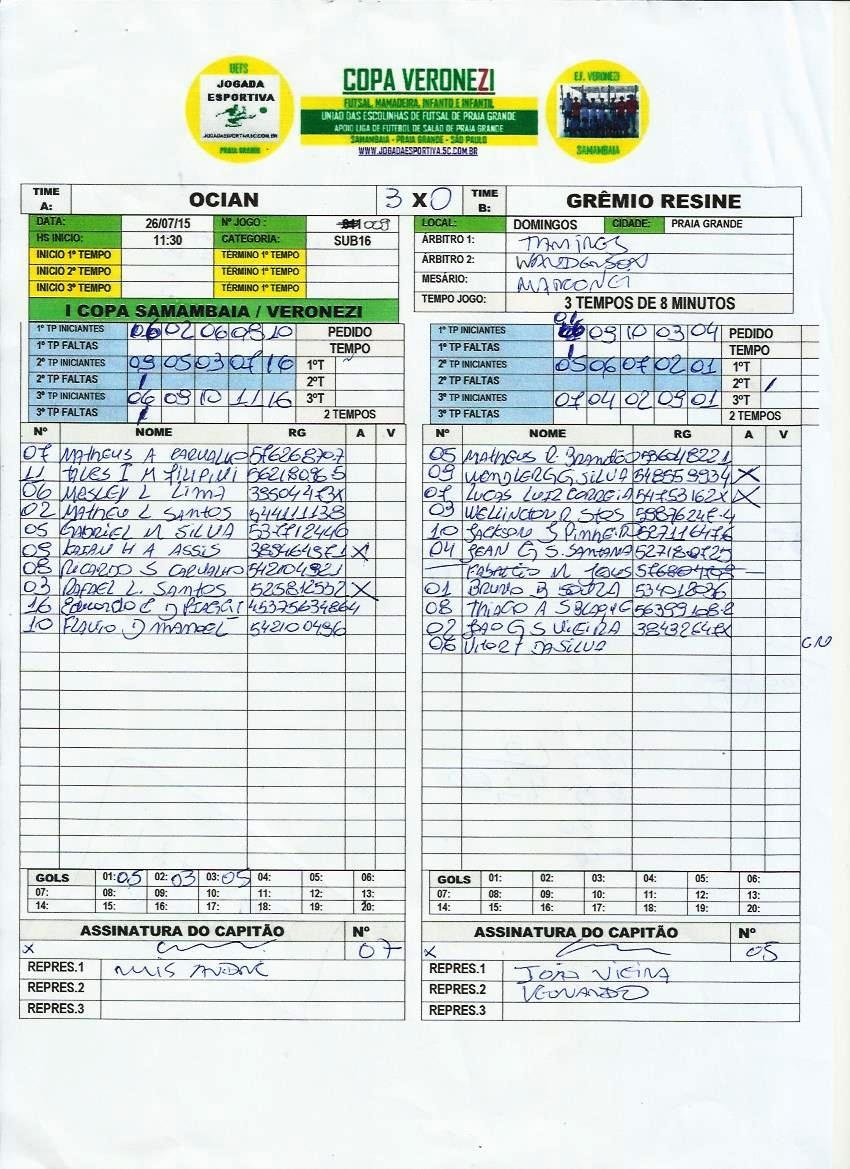 UEFS
JOGADA
ESPORTIVA
JOGADAESPORTIVA.SC.COM.BR
PRAIA GRANDE
COPA VERONEZI
FUTSAL, MAMADEIRA, INFANTO E INFANTIL
UNIÃO DAS ESCOLINHAS DE FUTSAL DE PRAIA GRANDE
APOIO LIGA DE FUTEBOL DE SALÃO DE PRAIA GRANDE
SAMAMBAIA - PRAIA GRANDE - SÃO PAULO
WWW.JOGADAESPORTIVA.SC.COM.BR
E.F. VERONEZI
SAMAMBAIA
TIME A: OCIAN 3 X 0 TIME B: GRÊMIO RESINE
DATA: 26/07/15 Nº JOGO : 009
HS INICIO: 11:30 CATEGORIA: SUB16
INICIO 1º TEMPO TÉRMINO 1º TEMPO
INICIO 2º TEMPO TÉRMINO 2º TEMPO
INICIO 3º TEMPO TÉRMINO 3º TEMPO
LOCAL: DOMINGOS CIDADE: PRAIA GRANDE
ÁRBITRO 1:
ÁRBITRO 2: WANDERSON
MESÁRIO:
TEMPO JOGO: 3 TEMPOS DE 8 MINUTOS
I COPA SAMAMBAIA / VERONEZI
1º TP INICIANTES 02 06 08 10 PEDIDO
1º TP FALTAS TEMPO
2º TP INICIANTES 09 05 03 07 16 1ºT
2º TP FALTAS 2ºT
3º TP INICIANTES 06 09 10 11 16 3ºT
3º TP FALTAS 2 TEMPOS
Nº NOME RG A V
07 MATHEUS A CARVALHO 576268707
11 TALES I M FILIPINI 56218096 5
06 WESLEY L LIMA
02 MATHEU L SANTOS 544111138
05 GABRIEL M SILVA 537712446
09 H A ASSIS X
08 RICARDO S CARVALHO 542104921
03 RAFAEL L. SANTOS 525812552 X
16 EDUARDO C D 45375634864
10 FLAVIO D MANOEL 542100496
GOLS 01: 05 02: 03 03: 05 04: 05: 06:
07: 08: 09: 10: 11: 12: 13:
14: 15: 16: 17: 18: 19: 20:
ASSINATURA DO CAPITÃO Nº
x 07
REPRES.1 LUIS ANDRÉ
REPRES.2
REPRES.3
1º TP INICIANTES 09 10 03 04 PEDIDO
1º TP FALTAS TEMPO
2º TP INICIANTES 05 06 07 02 01 1ºT
2º TP FALTAS 2ºT /
3º TP INICIANTES 07 04 02 09 01 3ºT
3º TP FALTAS 2 TEMPOS
Nº NOME RG A V
05 MATHEUS R BRANDÃO
09 G SILVA 548559934 X
07 LUCAS LUIZ CORREIA 54753162X X
03 WELLINGTON R STOS
10 JACKSON S PINHEIRO 527116476
04 JEAN G S. SANTANA 527180725
01 BRUNO B SOUZA 534012036
08 THIAGO A 56399108-2
02 JOAO G S VIEIRA
06 VITOR F DA SILVA
GOLS 01: 02: 03: 04: 05: 06:
07: 08: 09: 10: 11: 12: 13:
14: 15: 16: 17: 18: 19: 20:
ASSINATURA DO CAPITÃO Nº
x 05
REPRES.1 JOÃO VIEIRA
REPRES.2 LEONARDO
REPRES.3